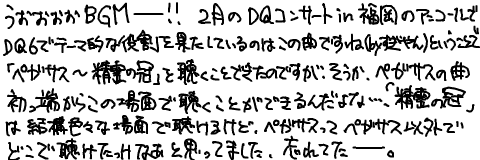 うおおおおBGMーー!! 2月のDQコンサートin福岡のアンコールで
DQ6でテーマ的な役割を果たしているのはこの曲ですね(byすぎやん)ということで
「ペガサス〜精霊の冠」を聴くことできたのですが、そうか、ペガサスの曲
初っ端からこの場面で聴くことができるんだよな…、「精霊の冠」
は結構色々な場面で聴けるけど、ペガサスってペガサス以外で
どこで聴けたっけなぁと思ってました、忘れてたーー。